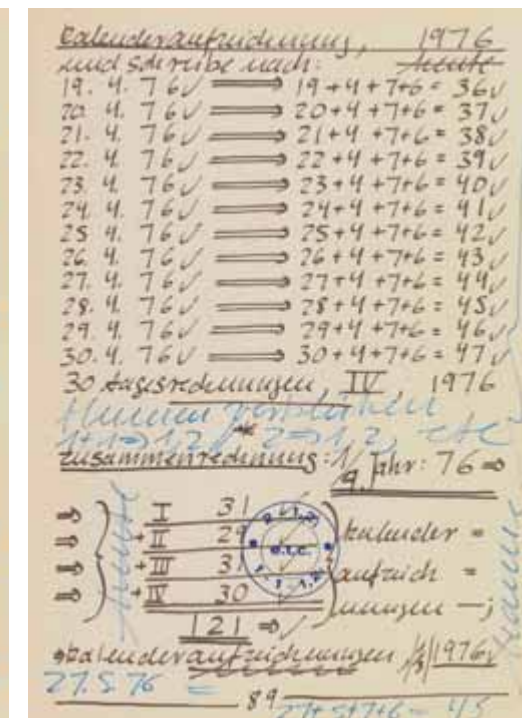 Kalenderaufzeichnung, 1976
und schreibe nach: heute
19. 4. 76 ✓ ⟹ 19+4+7+6= 36 ✓
20. 4. 76 ✓ ⟹ 20+4+7+6= 37 ✓
21. 4. 76 ✓ ⟹ 21+4+7+6= 38 ✓
22. 4. 76 ✓ ⟹ 22+4+7+6= 39 ✓
23. 4. 76 ✓ ⟹ 23+4+7+6= 40 ✓
24. 4. 76 ✓ ⟹ 24+4+7+6= 41 ✓
25 4. 76 ✓ ⟹ 25+4+7+6= 42 ✓
26. 4. 76 ✓ ⟹ 26+4+7+6= 43 ✓
27. 4. 76 ✓ ⟹ 27+4+7+6= 44 ✓
28. 4. 76 ✓ ⟹ 28+4+7+6= 45 ✓
29. 4. 76 ✓ ⟹ 29+4+7+6= 46 ✓
30. 4. 76 ✓ ⟹ 30+4+7+6= 47 ✓
30 tagesrechnungen, IV, 1976
etc
zusammenrechnung: 1/9. Jahr: 76 ⇒
I 31
+ II 29 kalender =
e.t.c.
+ III 31 aufzeich =
+ IV 30 nungen —;
121 ⇒ ✓
kalenderaufzeichnungen 1976
27.5.76 =
89
27+5+7+6= 45
heute